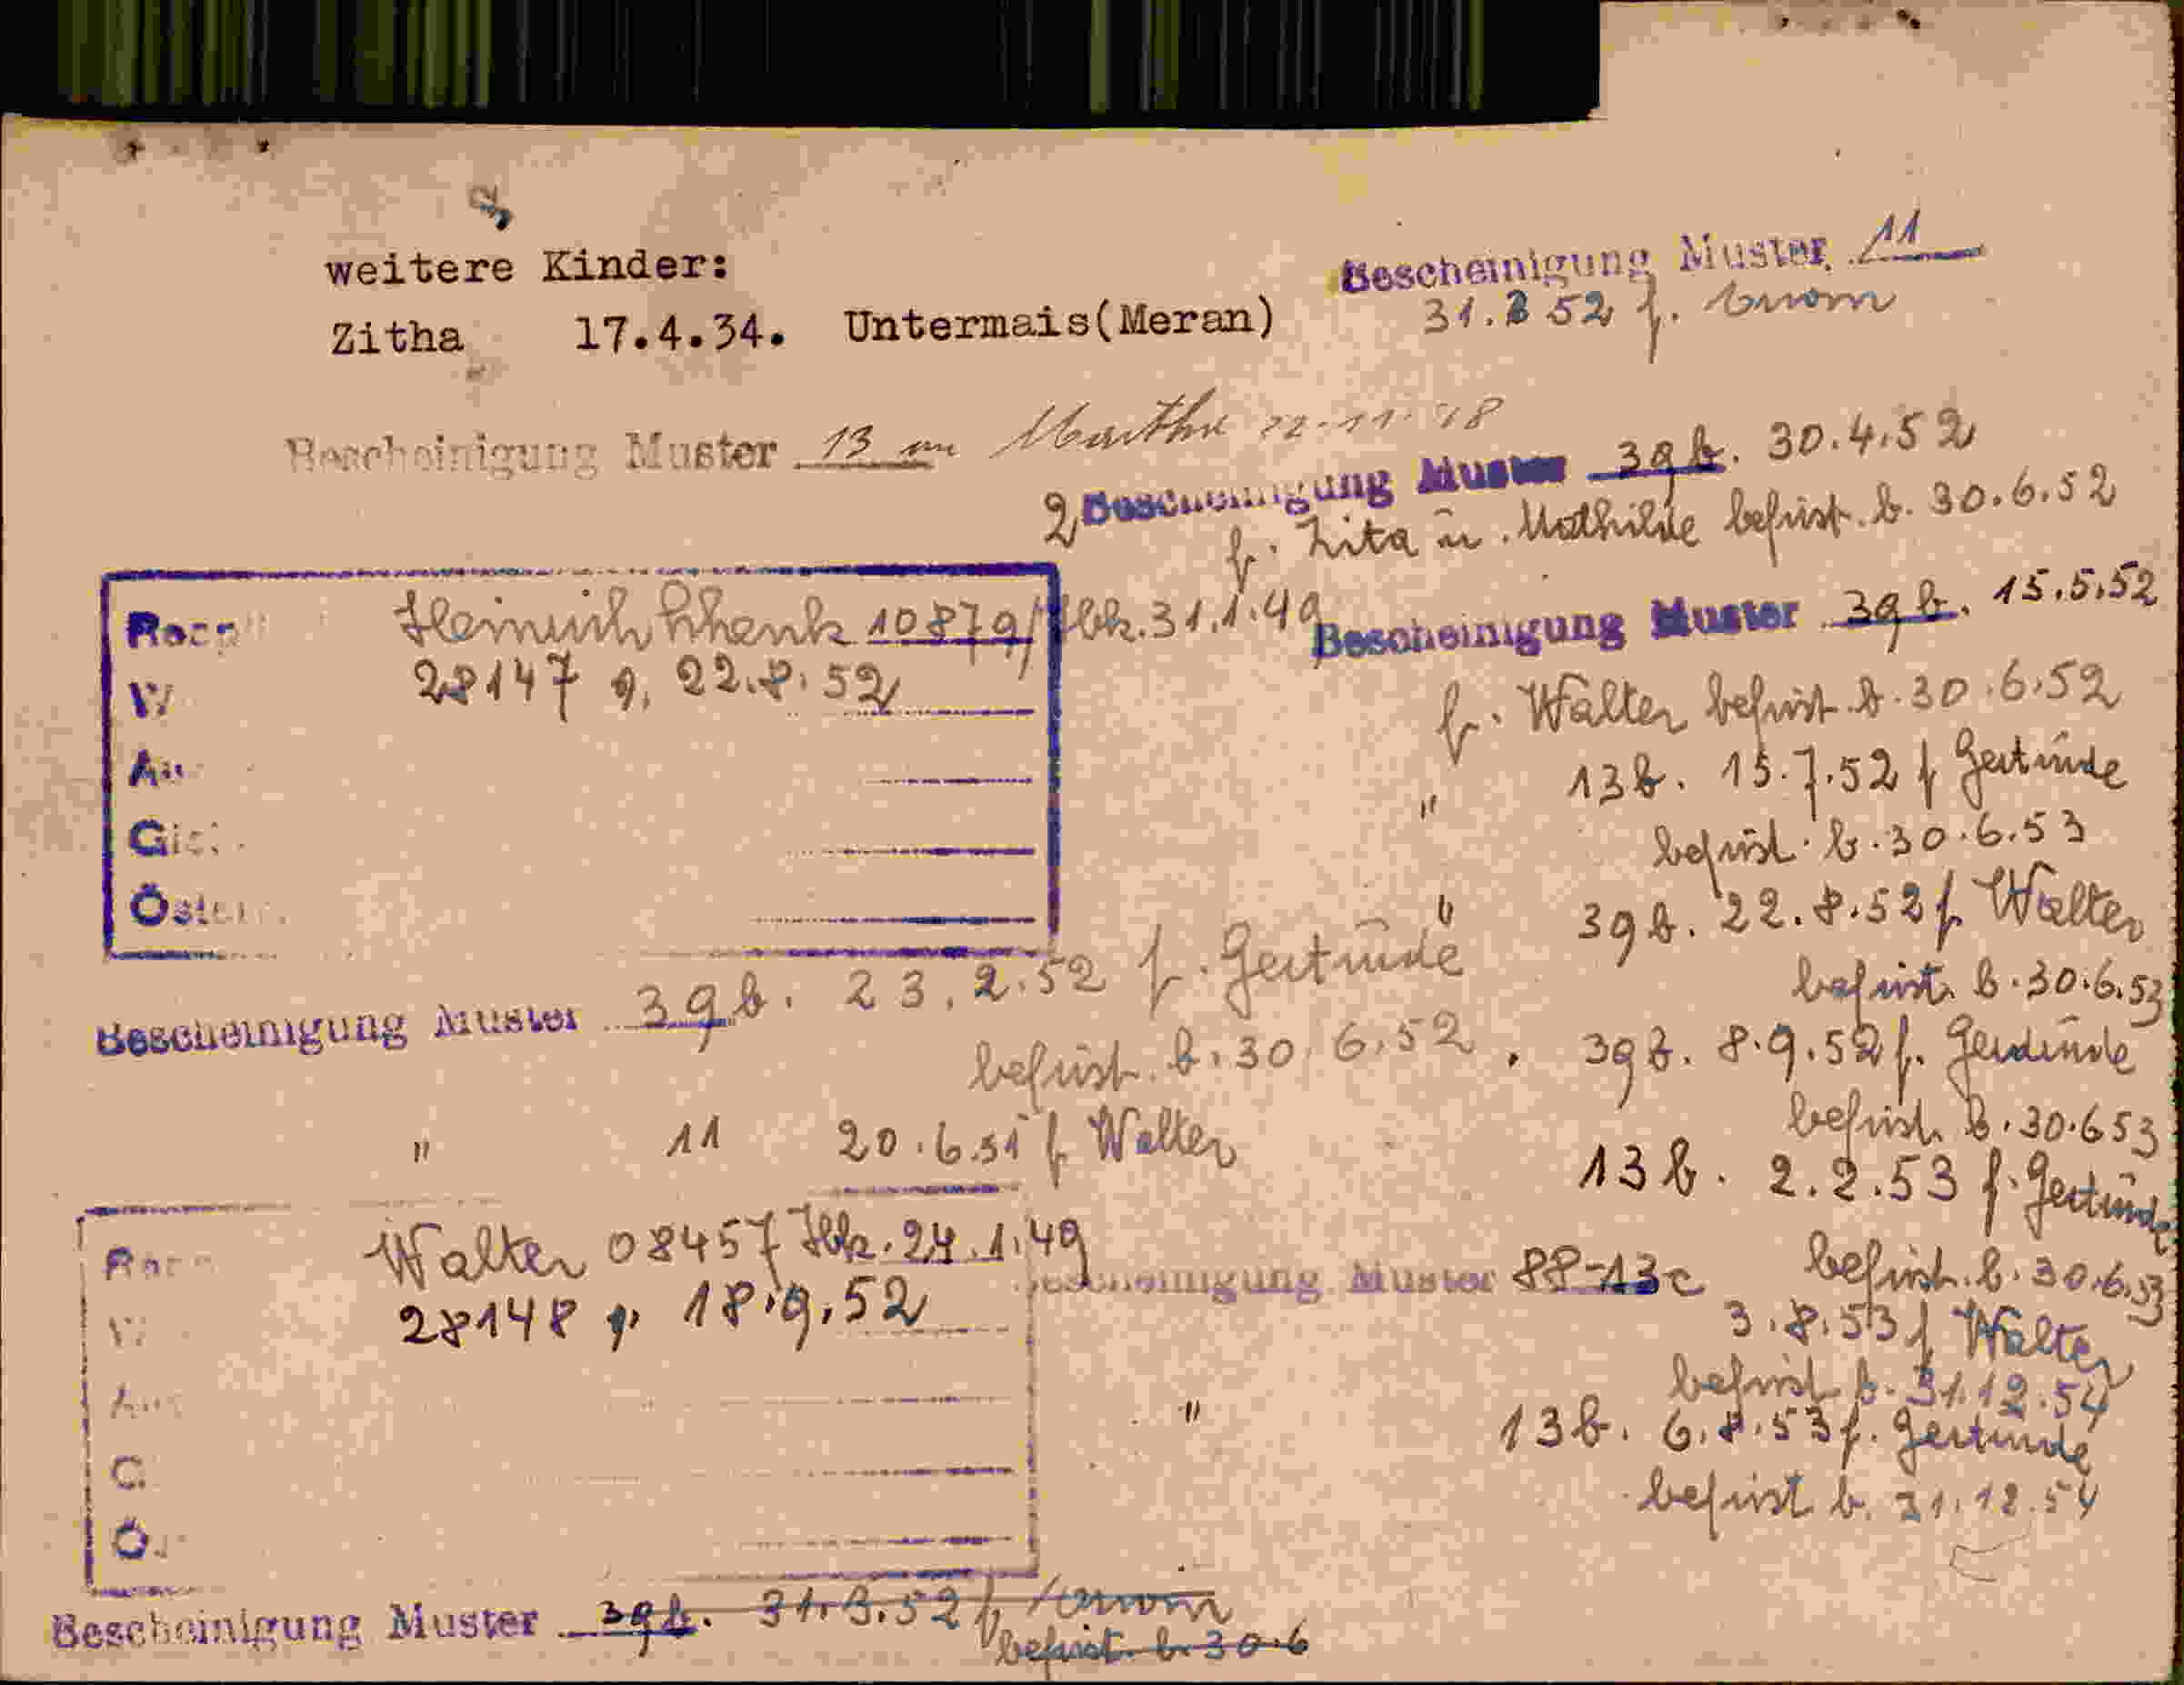 weitere Kinder:
Zitha 17.4.34. Untermais(Meran)
Bescheinigung Muster 11
31.3 52 f.
Bescheinigung Muster 13 Martha 22.11.48
2 Bescheinigung Muster 39 b. 30.4.52
f. Zita u. Mathilde befrist. b. 30.6.52
Heinrich 10879/ 31.1.49
28147 22.8.52
Bescheinigung Muster 39 b. 15.5.52
f. Walter befrist. b. 30.6.52
" 13 b. 15.7.52 f Gertrude
befrist. b. 30.6.53
" 39 b. 22.8.52 f. Walter
befrist. b. 30.6.53
Bescheinigung Muster 39 b. 23.2.52 f. Gertrude
befrist. b. 30.6.52
39 b. 8.9.52 f. Gertrude
befrist. b. 30.6 53
" 11 20.6.51 f. Walter
13 b. 2.2.53 f. Gertrude
befrist. b. 30.6.53
Walter 08457 24.1.49
28148 18.9.52
Bescheinigung Muster 88-13c
3.8.53 f Walter
befrist b. 31.12.54
" 13 b. 6.8.53 f. Gertrude
befrist b. 31.12.54
Bescheinigung Muster 39 b. 31.3.52 f.
befrist. b. 30.6